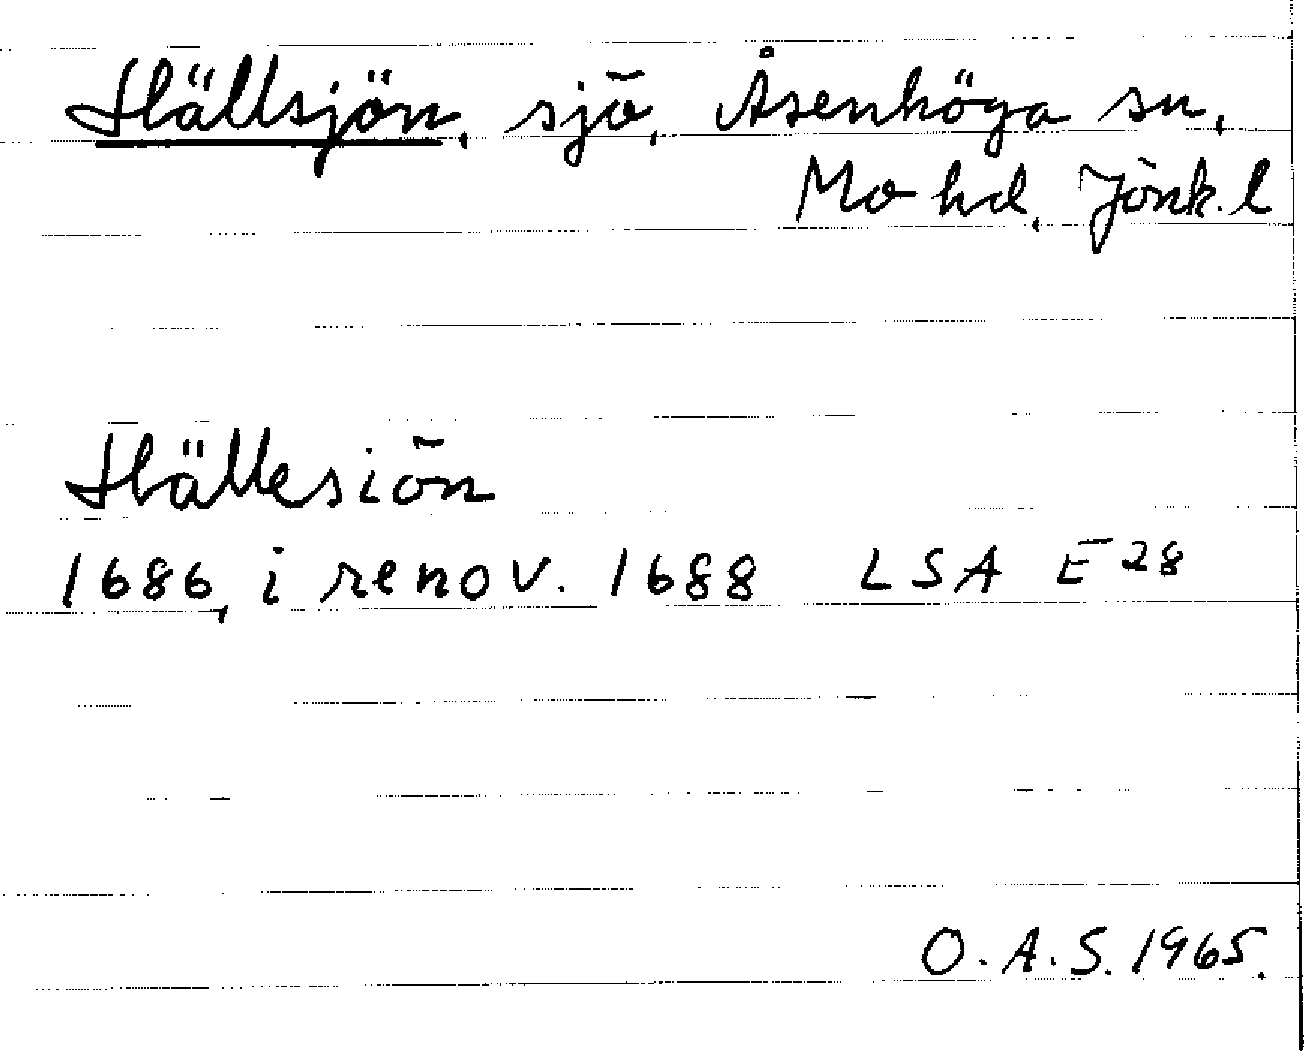 Hällsjön, sjö, Åsenhöga sn,
Mo hd, Jönk. l
Hällesiön
1686, i renov. 1688 LSA E 28
O.A.S. 1965.